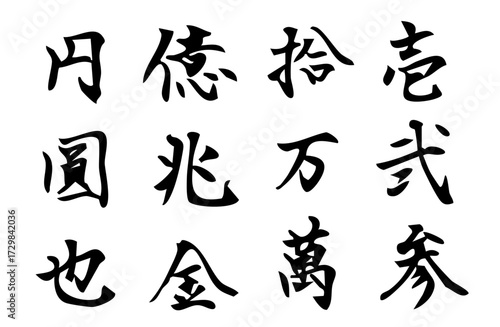 壱
弐
参
拾
万
萬
億
兆
金
円
圓
也
Adobe Stock | #1729842036